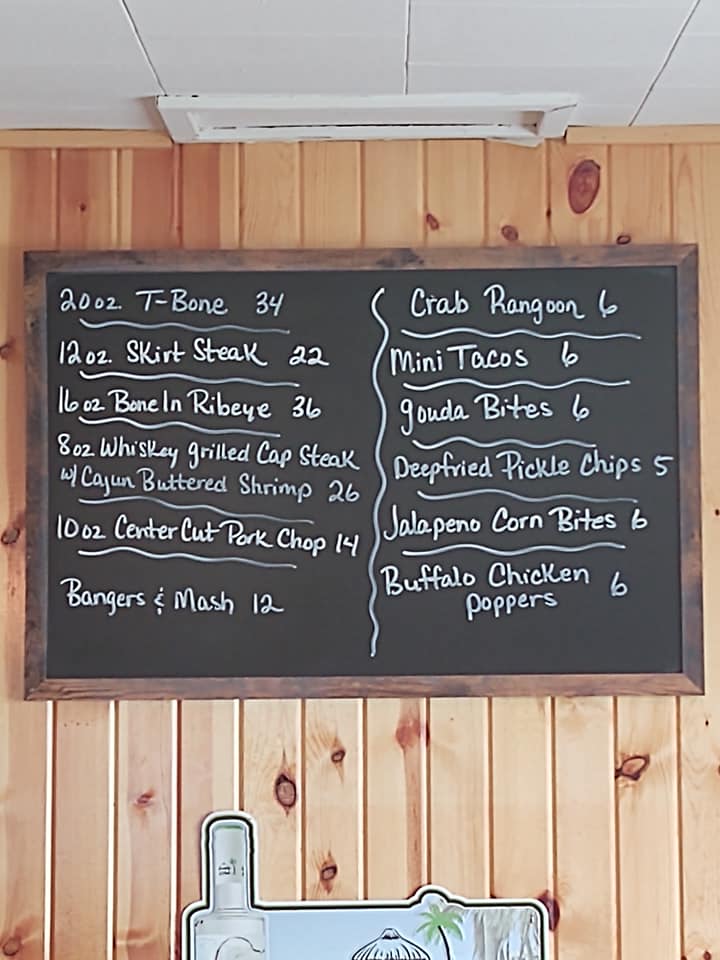 20oz. T-Bone 34
12oz. Skirt Steak 22
16oz Bone In Ribeye 36
8oz Whiskey grilled Cap Steak
w/ Cajun Buttered Shrimp 26
10oz Center Cut Pork Chop 14
Bangers & Mash 12
Crab Rangoon 6
Mini Tacos 6
gouda Bites 6
Deepfried Pickle Chips 5
Jalapeno Corn Bites 6
Buffalo Chicken 6
poppers